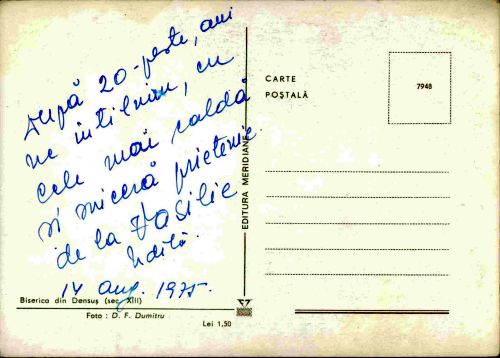 După 20-peste, ani
ne intilnim, cu
cele mai caldă
și sinceră prietenie
de la Vasilie
14 aug. 1975.
Biserica din Densuș (sec. XIII)
Foto : D. F. Dumitru
Lei 1,50
EDITURA MERIDIANE
CARTE
POȘTALĂ
7948